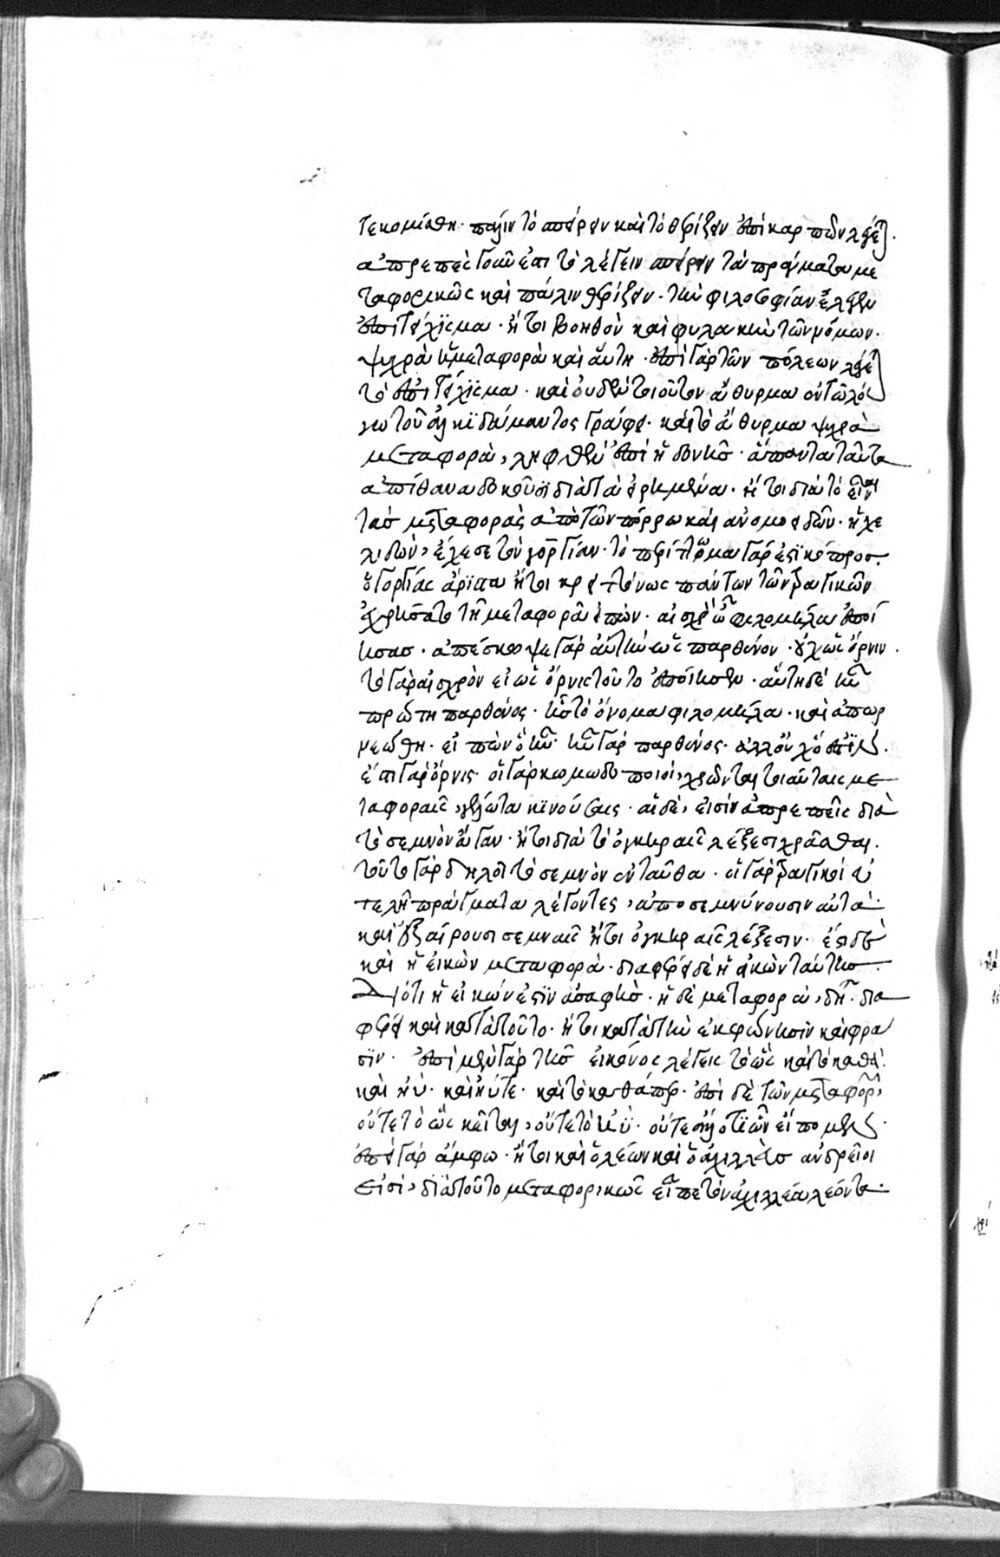 τεκομίσθη· πάλιν τὸ σπείρειν καὶ τὸ θερίζειν ἐπὶ καρπῶν λέγε
ἀπρεπὲς γοῦν ἐστι τὸ λέγειν σπείρειν τὰ πράγματα με
ταφορικῶς καὶ πάλιν θερίζειν· τὴν φιλοσοφίαν ἔλεξεν
ἐπιτείχισμα· ἤτοι βοηθὸν καὶ φυλακὴν τῶν νόμων·
ψυχρὰ ἡ μεταφορὰ καὶ αὕτη· ἐπὶ γὰρ τῶν πόλεων λέγε
τὸ ἐπιτείχισμα· καὶ οὐδὲν τοιοῦτον ἄθυρμα ἐν τῷ λό
γῳ τοῦ ἀλκιδάμαντος γράφει· καὶ τὸ ἄθυρμα ψυχρὰ
μεταφορὰ, ληφθὲν ἐπὶ ἡδονῆς· ἅπαντα ταῦτα
ἀπίθανα δοκοῦσι διὰ τὰ εἰρημένα· ἤτοι διὰ τὸ εἶναι
τὰς μεταφορὰς ἀπὸ τῶν πόρρω καὶ ἀνομοειδῶν· ἡ χε
λιδὼν, ἔχεσε τὸν γοργίαν· τὸ περίττωμα γάρ ἐστι κόπρος·
ὁ γοργίας ἄριστα ἤτοι κρειττόνως πάντων τῶν τραγικῶν
ἐχρήσατο τῇ μεταφορᾷ εἰπών· αἰσχρὸν ὦ φιλομήλα ἐποί
ησας· ἀπέσκωψε γὰρ αὐτὴν ὡς παρθένον· οὐχ ὡς ὄρνιν·
τὸ γὰρ αἰσχρὸν εἰ ὡς ὄρνις τοῦτο ἐποίησεν· αὕτη δὲ ἦν
πρώτη παρθένος· ἧς τὸ ὄνομα φιλομήλα· καὶ ἀπωρ
νεώθη· εἰπὼν ὃ ἦν· ἦν γὰρ παρθένος· ἀλλ' οὐχ ὅ ἐστιν·
ἔστι γὰρ ὄρνις· οἱ γὰρ κωμωδοποιοὶ, χρῶνται τοιαύταις με
ταφοραῖς, γέλωτα κινούσαις· αἱ δὲ, εἰσὶν ἀπρεπεῖς διὰ
τὸ σεμνὸν ἄγαν· ἤτοι διὰ τὸ ὀγκηραῖς λέξεσι χρᾶσθαι·
τοῦτο γὰρ δηλοῖ τὸ σεμνὸν ἐνταῦθα· οἱ γὰρ τραγικοὶ εὐ
τελῆ πράγματα λέγοντες, ἀποσεμνύνουσιν αὐτὰ·
καὶ ἐξαίρουσι σεμναῖς ἤτοι ὀγκηραῖς λέξεσιν· ἔστι δὲ
καὶ ἡ εἰκὼν μεταφορὰ· διαφέρει δὲ ἡ εἰκὼν ταύτης·
Διότι ἡ εἰκών ἐστιν ἀσαφὴς· ἡ δὲ μεταφορὰ, δῆ· δια
φέρει καὶ κατὰ τοῦτο· ἤτοι κατὰ τὴν ἐκφώνησιν καὶ φρά
σιν· ἐπὶ μὲν γὰρ τῆς εἰκόνος λέγεις τὸ ὡς καὶ τὸ καθά·
καὶ ἠύ· καὶ ἠύτε· καὶ τὸ καθάπερ· ἐπὶ δὲ τῶν μεταφορῶν,
οὔτε τὸ ὡς κεῖται, οὔτε τὸ ἠύ· οὔτε ἄλλο τι ὧν εἴπομεν·
ἐπεὶ γὰρ ἄμφω· ἤτοι καὶ ὁ λέων καὶ ὁ ἀχιλλεὺς ἀνδρεῖοι
εἰσὶ, διὰ τοῦτο μεταφορικῶς εἶπε τὸν ἀχιλλέα λέοντα·